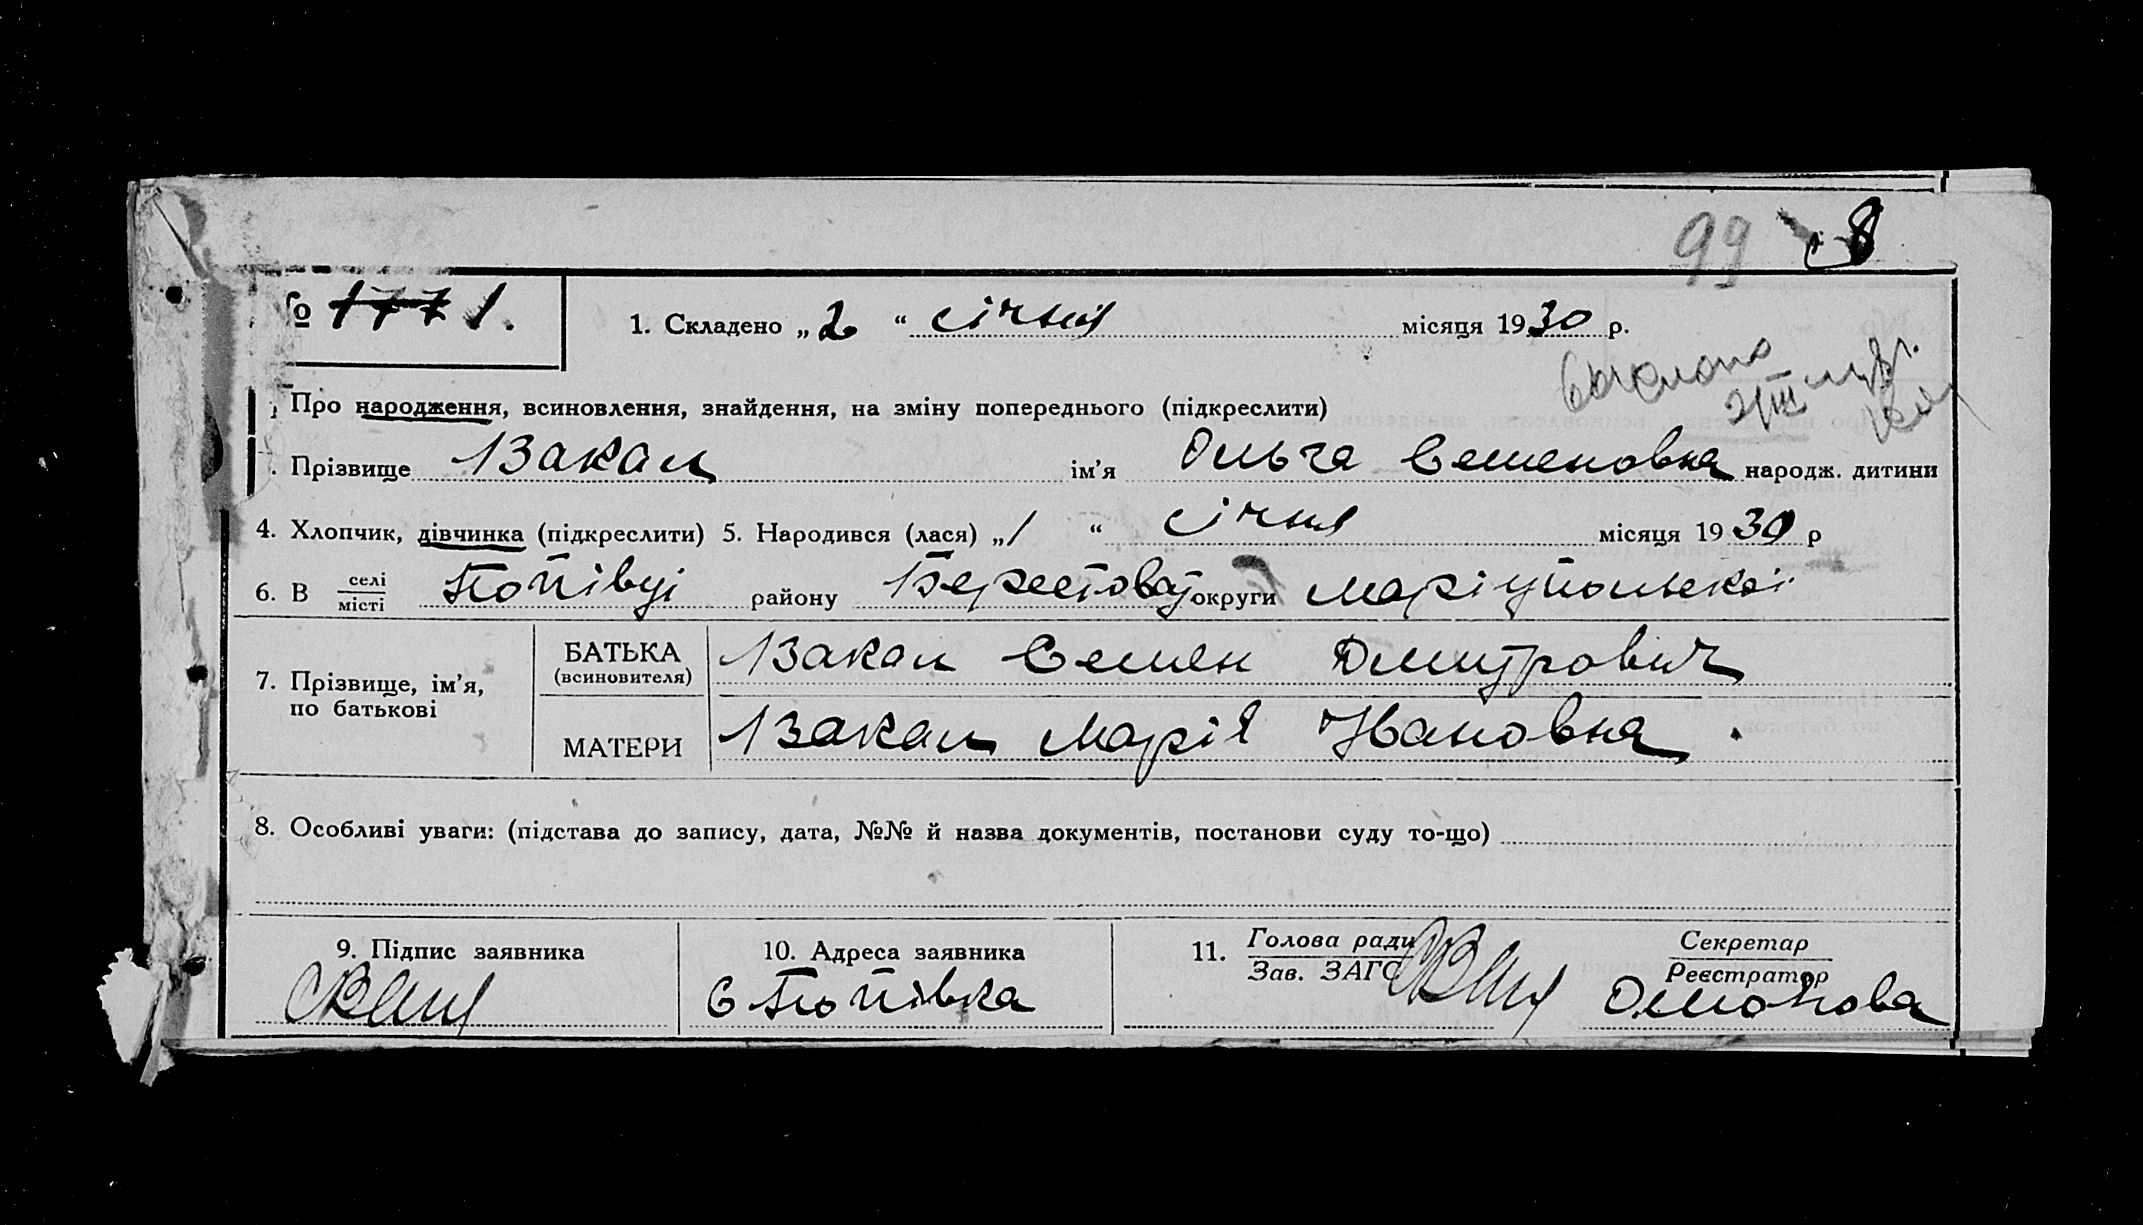 99 8
№ 1771.
1. Складено „2“ січня місяця 1930 р.
Про народження, всиновлення, знайдення, на зміну попереднього (підкреслити)
Прізвище Вакал ім’я Ольга Семеновна народж. дитини
4. Хлопчик, дівчинка (підкреслити) 5. Народився (лася) „1“ січня місяця 1930 р
6. В селі/місті Попівці району Берестоват округи Маріупольскої
7. Прізвище, ім’я, по батькові
БАТЬКА (всиновителя) Вакал Семен Дмитрович
МАТЕРИ Вакал Марія Ивановна
8. Особливі уваги: (підстава до запису, дата, №№ й назва документів, постанови суду то-що)
9. Підпис заявника
10. Адреса заявника
с Попівка
11. Голова ради
Зав. ЗАГС
Секретар
Реєстратор